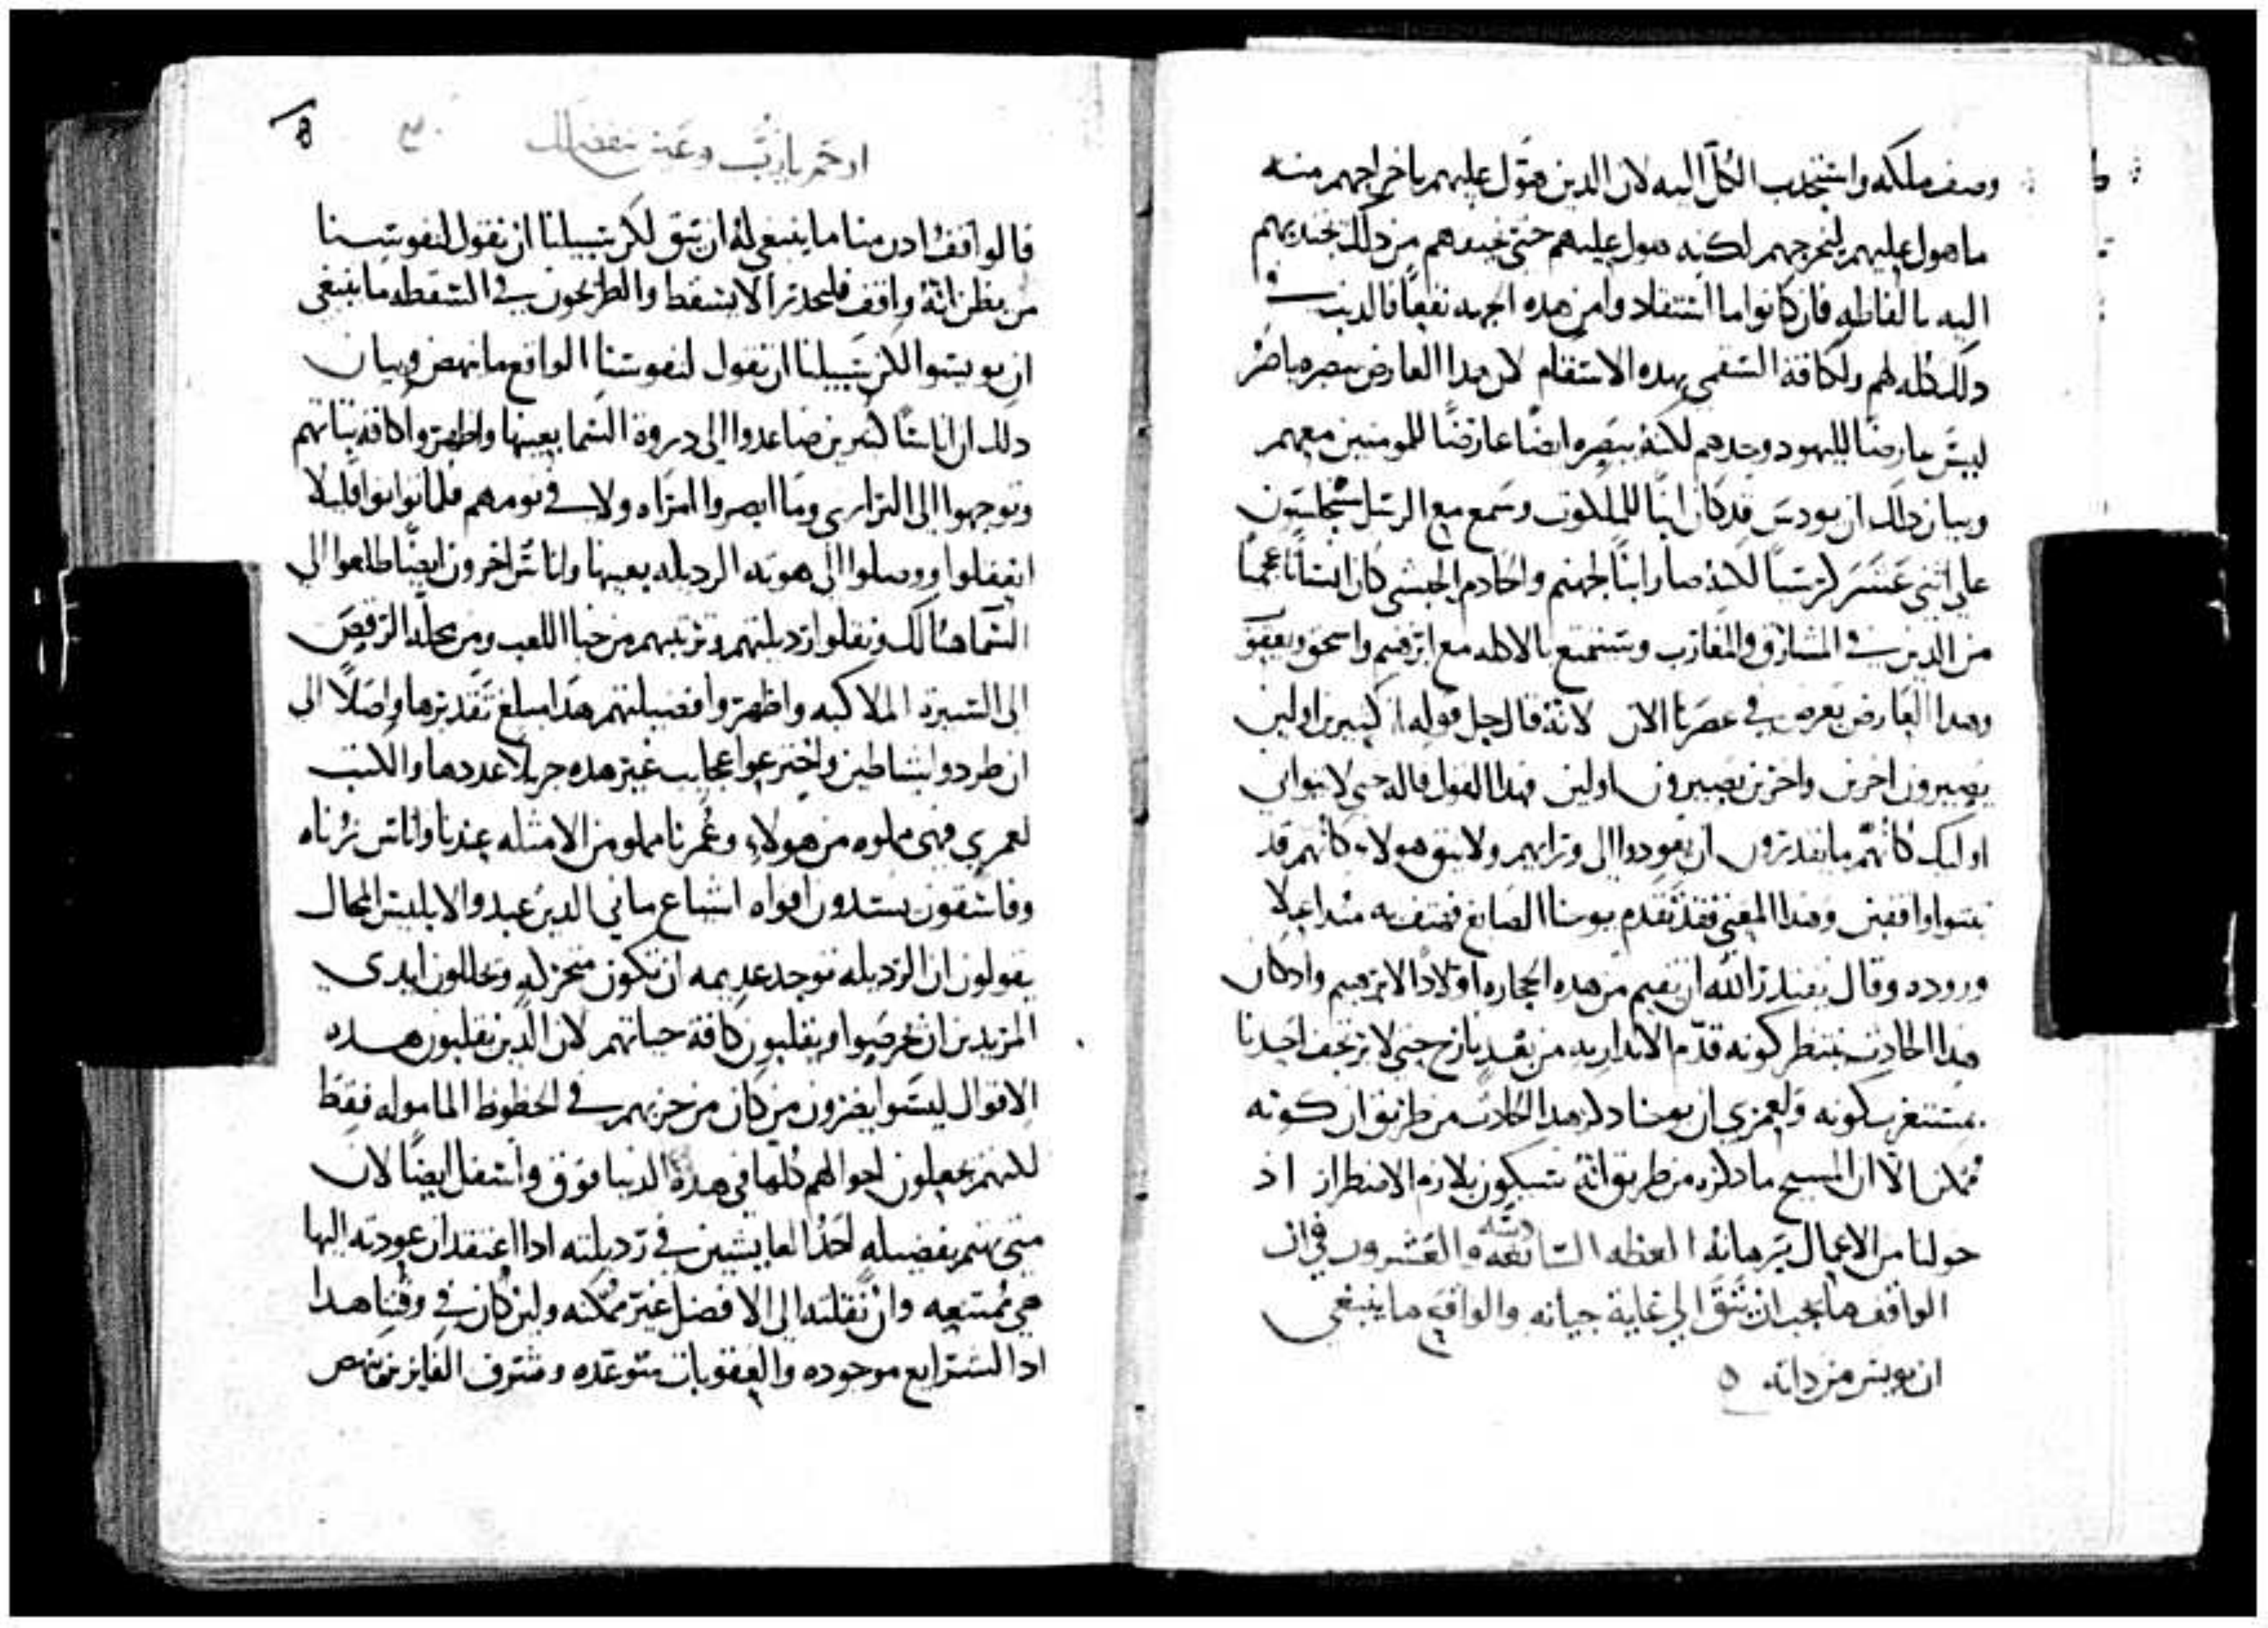 وصف ملكه واستجذب الكل اليه لان الدين هول عليهم باخراجهم منه
ما هول عليهم ليخرجهم لكنه هول عليهم حتى يبعدهم من دلك بجديهم
اليه بالفاطه فان كانوا ما استفادوا من هده الجهه نفعا فالدنب
دلك كله لهم ولكافة السقمى بهده الاسقام لان هدا العارض نبصره ماضر
ليس عارضا لليهود وحدهم لكنه نبصره ايضا عارضا للمومنين معهم
وبيان دلك ان يودس قد كان ابنا للملكوت وسمع مع الرسل ستجلسون
على اثنى عشر كرسيا لكنه صار ابنا لجهنم والخادم الحبشي كان انسانا عجميا
من الدين في المشارق والمغارب وستمتع بالاكله مع ابرهيم واسحق ويعقوب
وهدا العارض يعرض في عصرنا الان لانه قال جل قوله ان كبيرين اولين
يصيرون اخرين واخرين يصيرون اولين فهدا القول قاله حتى لا يتوانى
اوليك كانهم ما يقدرون ان يعودوا الى وترايهم ولا يثق هولاء كانهم قد
ثبتوا واقفين وهدا المعنى فقد تقدم يوحنا الصابغ فهتف به مند اعلا
وروده وقال يقدر الله ان يقيم من هده الحجاره اولادا لابرهيم واد كان
هدا الحادث ينتظر كونه قدم الاندار به من بعد نازح حتى لا يرتجف احدنا
مستغرب كونه ولعمري ان يوحنا دكر هدا الحادث من طريق ان كونه
ممكنا الا ان المسيح ما دكره من طريق انه سيكون بلازم الاضطرار اد
خولنا من الاعمال برهانه العظه السابعه والعشرون في ان
الواقف ما يجب ان يثق الى غاية حياته والواقع ما ينبغي
ان يويس من داته
ارحم يارب وعني بتفضلك
قالوا قف ادن منا ما ينبغي له ان يثق لكن سبيلنا ان نقول لنفوسنا
من يظن انه واقف فليحدر الا يسقط والطريحون في السقطه ما ينبغي
ان يويسوا لكن سبيلنا ان نقول لنفوسنا الواقع ما ينهض وبيان
دلك ان اناسا كثيرين صاعدوا الى دروة السما بعينها واظهروا كافة ثباتهم
وتوجهوا الى البراري وما ابصروا امراه ولا في نومهم فلما توانوا قليلا
انعقلوا ووصلوا الى هوته الرديله بعينها واناس اخرون ايضا طلعوا الى
السما هنالك ونقلوا رديلتهم وتربيهم من خبا اللعب ومن محلة الرقص
الى السيرة الملاكيه واظهروا فضيلتهم هدا مبلغ تقديرها واصلا الى
ان طردوا شياطين واخترعوا عجايب غير هده جزيلا عددها والكتب
لعمري فهي مملوه من هولاء وعمرنا مملو من الامثله عندنا واناس زناه
وفاسقون يسدون افواه اشياع ماني الدين عبدوا لابليس المحال
يقولون ان الرديله توجد عديمه ان تكون متحركه ويحللون ايدي
المزيدين ان يحرصوا ويقلبون كافة حياتهم لان الدين يقلبون هده
الاقوال ليسوا يضرون من كان من حزبهم في الحظوظ المامولة فقط
لكنهم يجعلون احوالهم كلها في هدة الدنيا فوق واسفل ايضا لان
متى يهتم بفضيله احد العايشين في رديلته ادا اعتقد ان عودته اليها
هي ممتنعه وان نقلته الى الافضل غير ممكنه ولين كان في وقتنا هدا
ادا الشرايع موجوده والعقوبات متوعده وشرف الفايزين ينهض